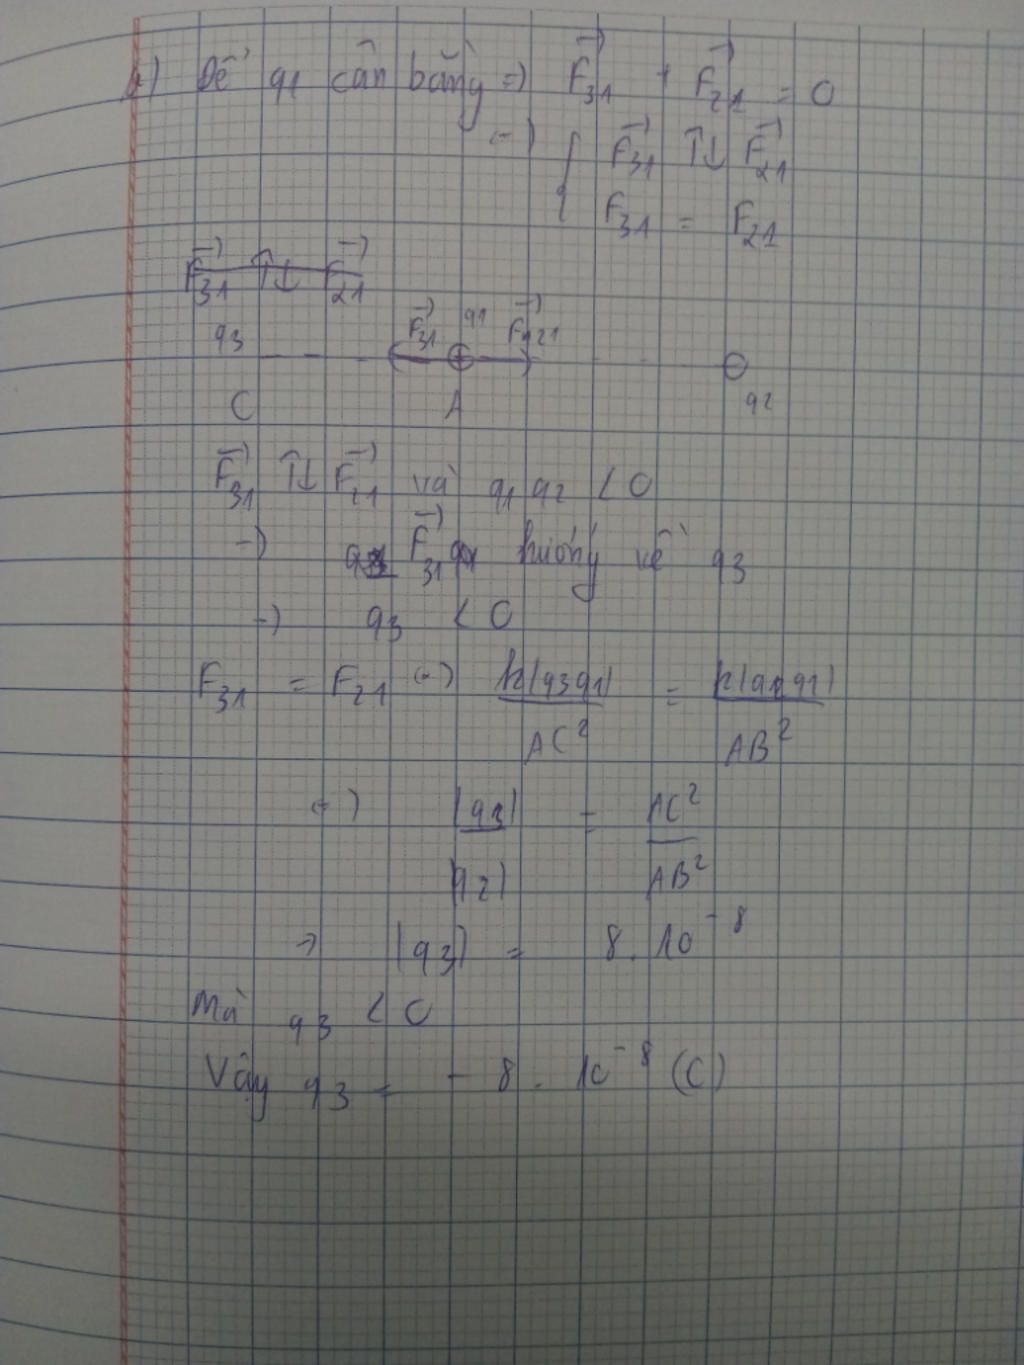 b) Để q1 cân bằng => F31 + F21 = 0
<=> { F31 ↑↓ F21
F31 = F21
F31 ↑↓ F21
q3 F31 q1 F21
C A q2
F31 ↑↓ F21 và q1 q2 < 0
-) F31 hướng về q3
-) q3 < 0
F31 = F21 <=> k|q3q1| / AC² = k|q1q2| / AB²
<=> |q3| / |q2| = AC² / AB²
-> |q3| = 8.10⁻⁸
Mà q3 < 0
Vậy q3 = - 8.10⁻⁸ (C)